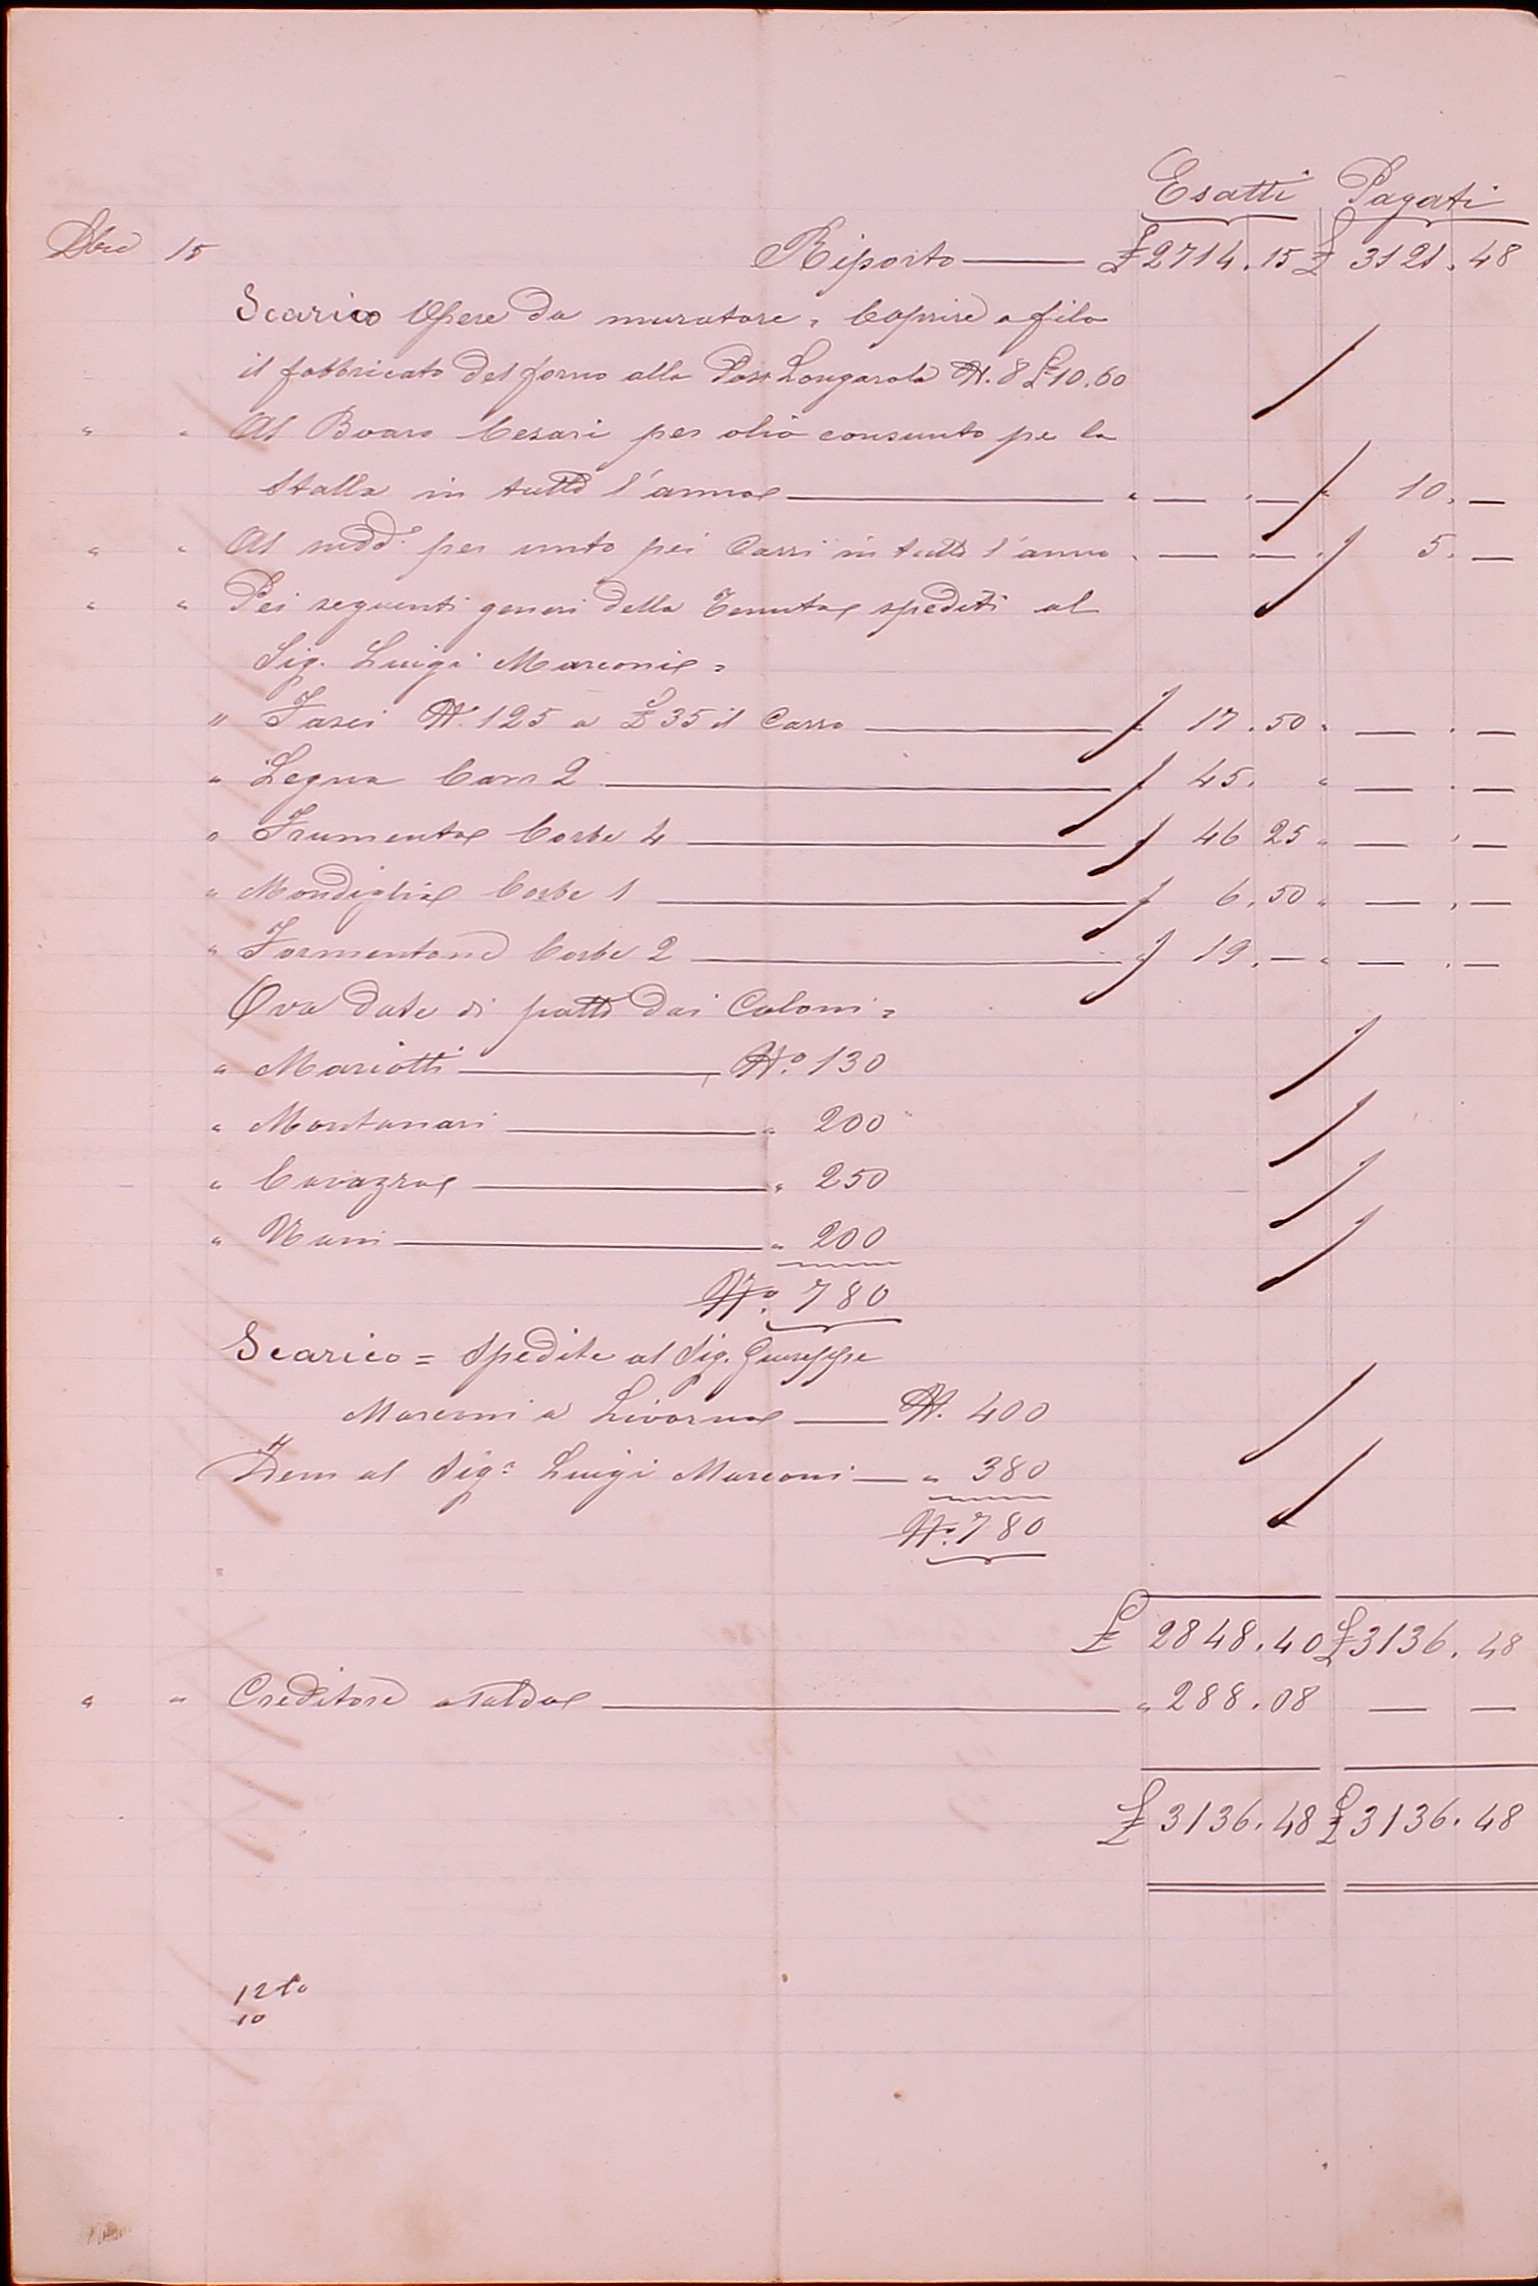 Esatti Pagati
Dbre 15 Riporto £ 2714.15 £ 3121.48
Scarico Opere da muratore = Coprire a filo
il fabbricato del forno alla Poss Longarola N. 8 £ 10.60
" " Al Boaro Cesari per olio consunto pe la
Stalla in tutto l'anno " — . — " 10. —
" " Al sudd.o per unto pei Carri in tutto l'anno " — . — " 5. —
" " Pei seguenti generi della Tenuta spediti al
Sig. Luigi Marconi =
" Fasci N. 125 a £ 35 il Carro " 17.50 " — . —
" Legna Carra 2 " 45. " — . —
" Frumento Corbe 4 " 46 25 " — . —
" Mondiglia Corbe 1 " 6.50 " — . —
" Formentone Corbe 2 " 19. — " — . —
Ova date di patto dai Coloni =
" Mariotti N.o 130
" Montanari " 200
" Cavazza " 250
" Nani " 200
N.o 780
Scarico = Spedite al Sig. Giuseppe
Marconi a Livorno N. 400
Idem al Sig.r Luigi Marconi " 380
N.o 780
£ 2848.40 £ 3136.48
" " Creditore a saldo " 288.08 — —
£ 3136.48 £ 3136.48
10